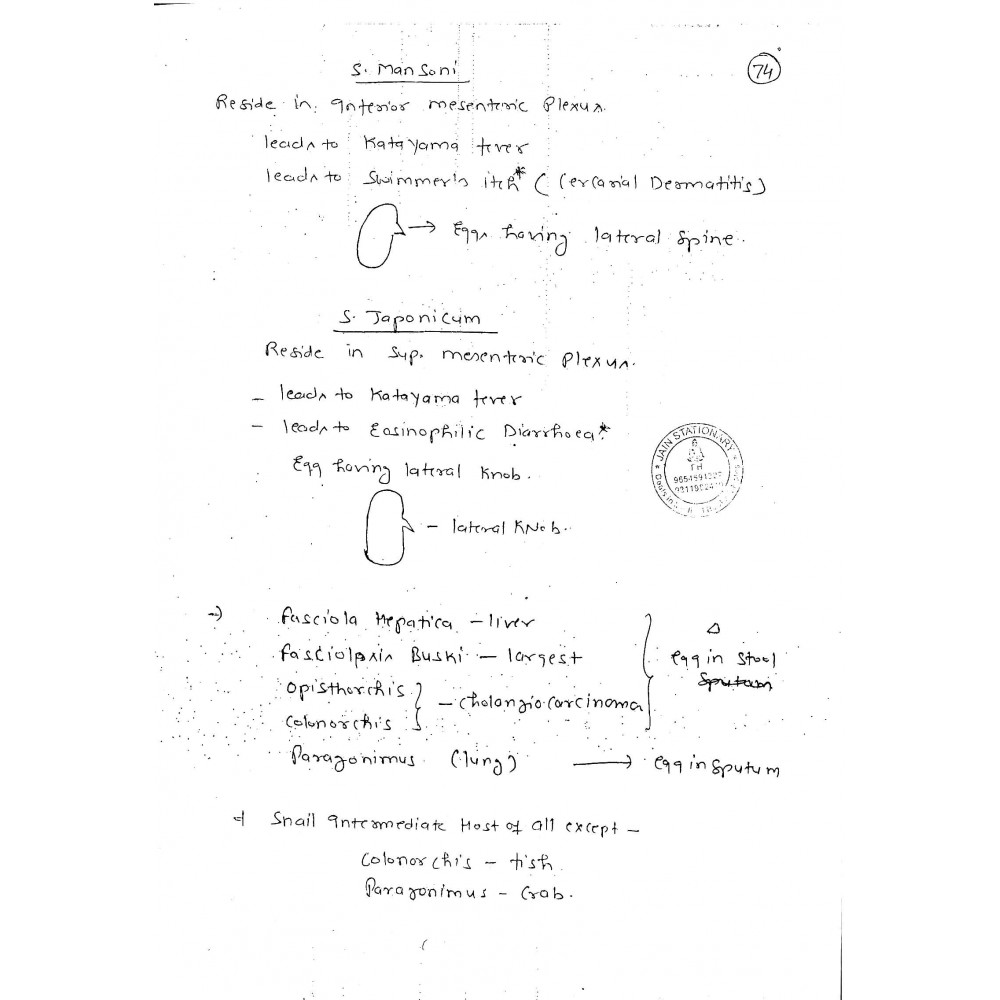 74
S. Mansoni
Reside in Inferior mesenteric Plexus.
leads to Katayama fever
leads to Swimmer's itch* (Cercarial Dermatitis)
→ Eggs having lateral spine.
S. Japonicum
Reside in Sup. mesenteric Plexus.
- leads to Katayama fever
- leads to Eosinophilic Diarrhoea*
Egg having lateral Knob.
- lateral KNob.
JAIN STATIONARY
→) Fasciola Hepatica - liver
Fasciolpsis Buski - largest
Opisthorchis
Colonorchis
} - cholangiocarcinoma
} Egg in Stool
Sputum
Paragonimus (lung) → egg in Sputum
Snail Intermediate Host of all except -
Colonorchis - fish.
Paragonimus - Crab.